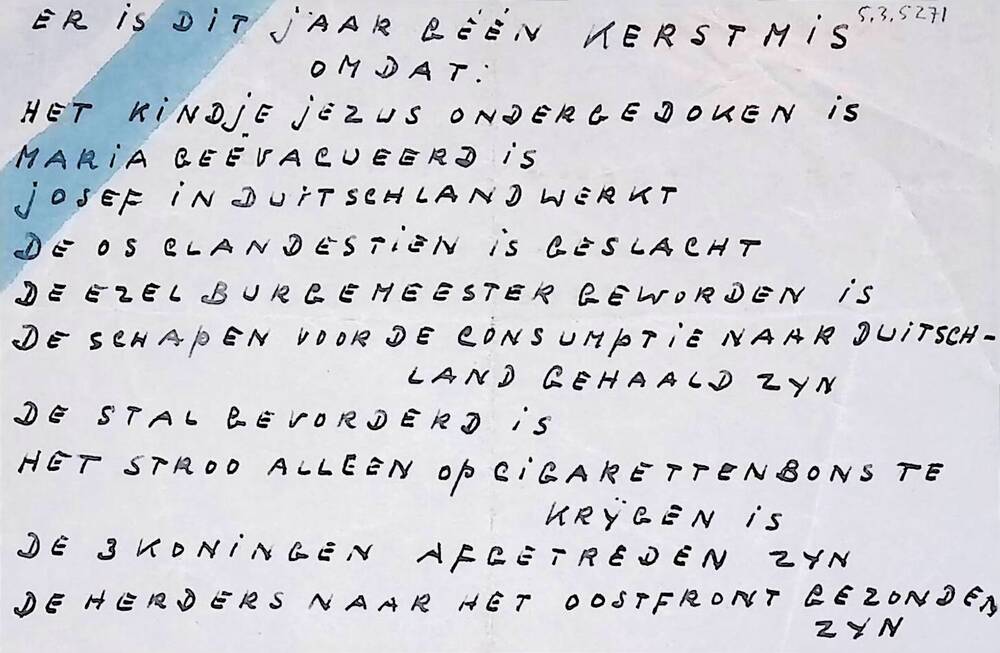 ER iS DiT jAAR GÉÉN KERSTMiS 5.3.5271
OMDAT:
HET KiNDjE jEZUS ONDERGEDOKEN iS
MARiA GEËVACUEERD iS
jOSEF iN DUiTSCHLAND WERKT
DE OS CLANDESTiEN iS GESLACHT
DE EZEL BURGEMEESTER GEWORDEN iS
DE SCHAPEN VOOR DE CONSUMPTiE NAAR DUiTSCH-
LAND GEHAALD ZYN
DE STAL GEVORDERD iS
HET STROO ALLEEN OP CiGARETTENBONS TE
KRŸGEN iS
DE 3 KONiNGEN AFGETREDEN ZYN
DE HERDERS NAAR HET OOSTFRONT GEZONDEN
ZYN